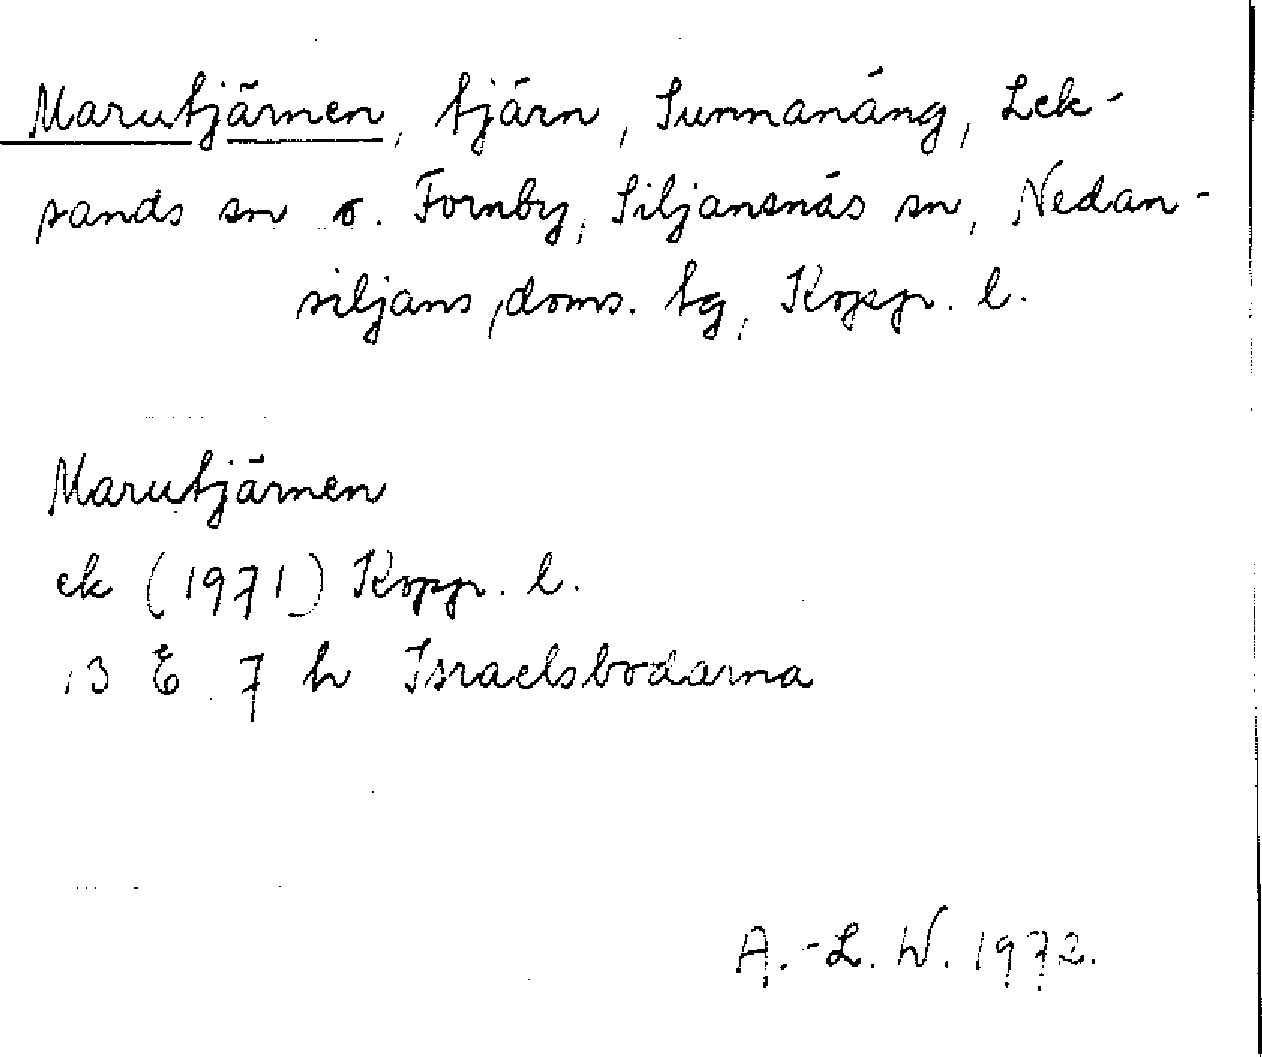 Marutjärnen, tjärn, Sunnanäng, Lek-
sands sn o. Fornby, Siljansnäs sn, Nedan-
siljans doms. tg, Kopp. l.
Marutjärnen
ek (1971) Kopp. l.
13 E 7 h Israelsbodarna
A.-L. W. 1972.